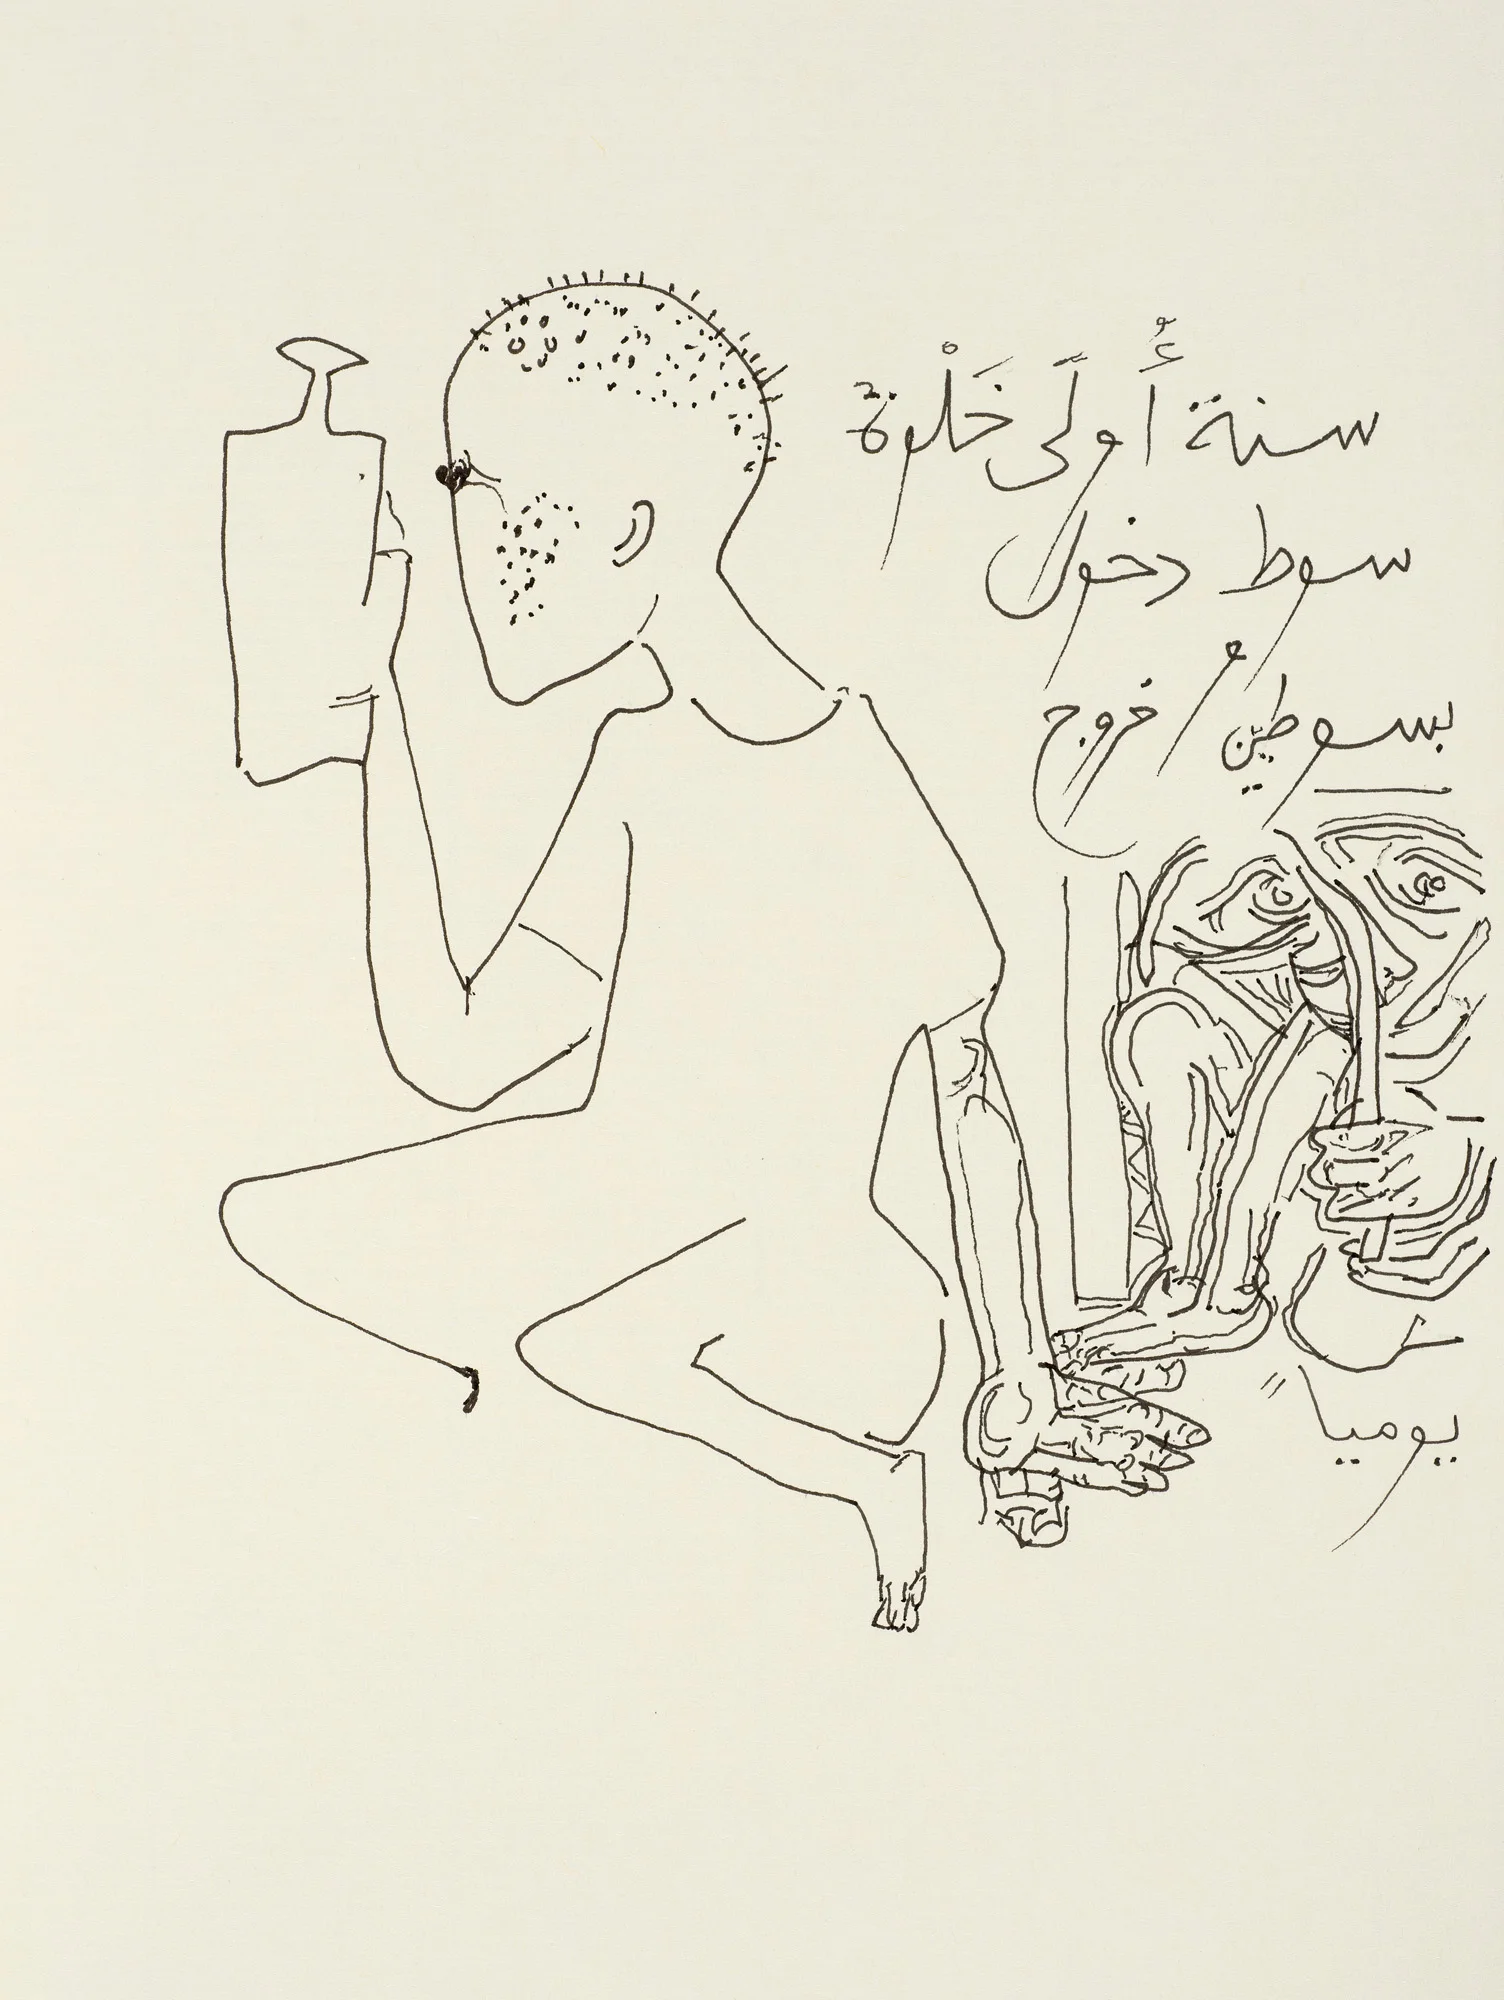 سنة أُولَى خَلْوة
سوط دخول
و
بسوطين خروج
يوميا